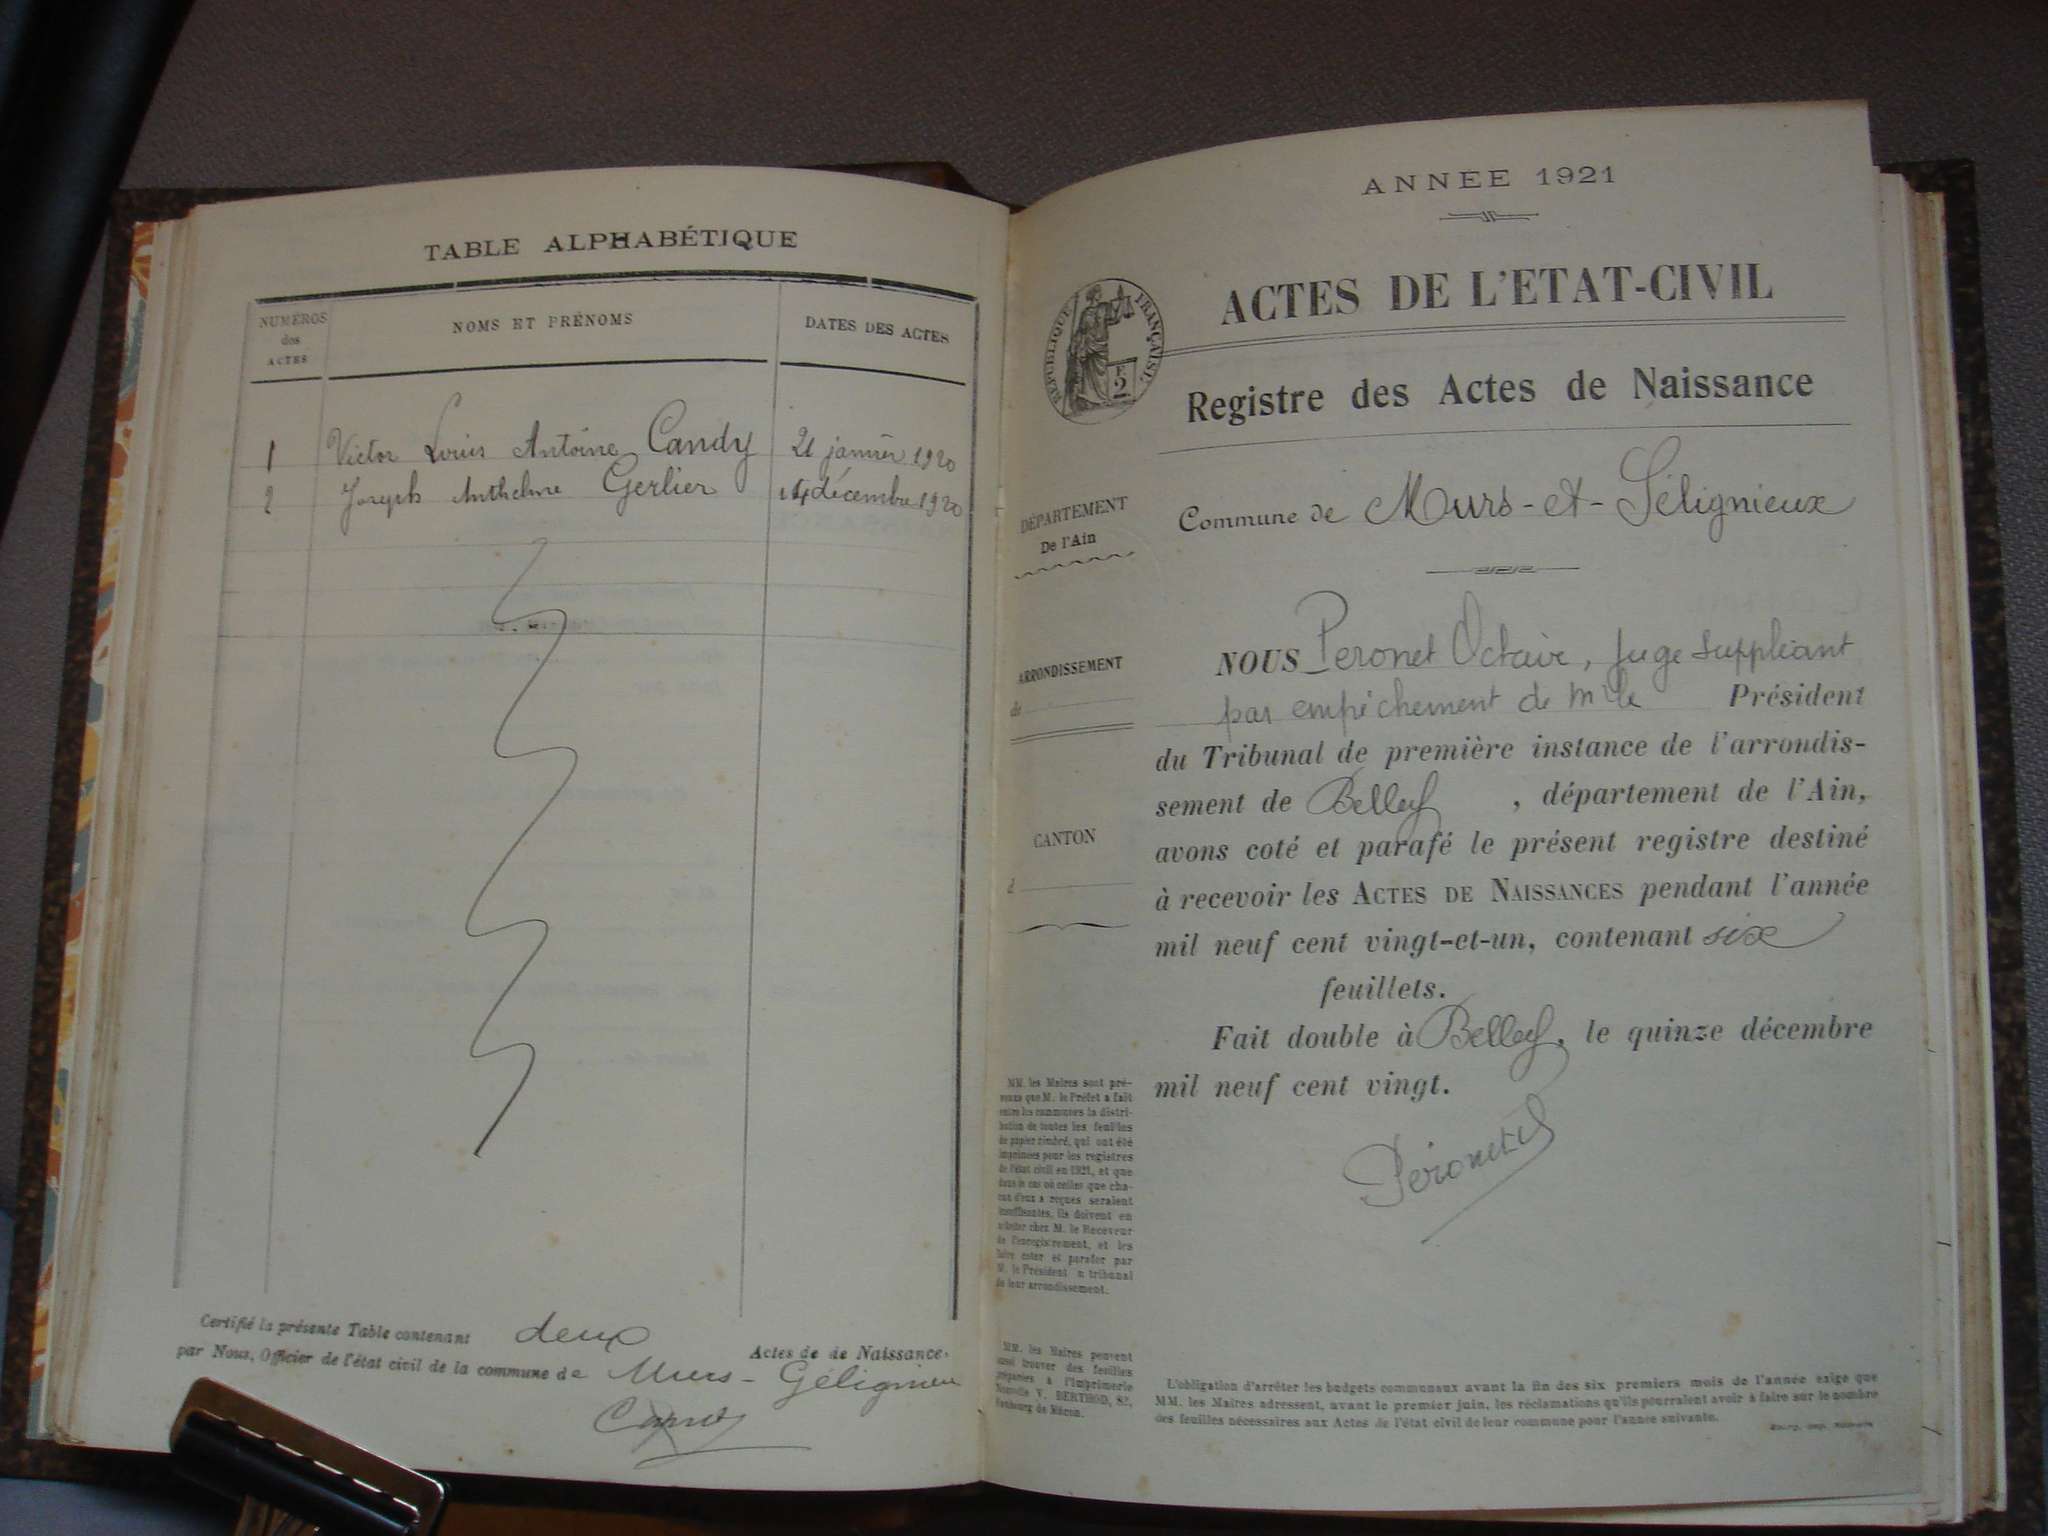 TABLE ALPHABÉTIQUE
NUMÉROS
des
ACTES
NOMS ET PRÉNOMS
DATES DES ACTES
1 Victor Louis Antoine Candy 21 janvier 1920
2 Joseph Anthelme Gerlier 14 décembre 1920
Certifié la présente Table contenant deux Actes de de Naissance.
par Nous, Officier de l'état civil de la commune de Murs-Gélignieux
ANNÉE 1921
ACTES DE L'ETAT-CIVIL
RÉPUBLIQUE FRANÇAISE
F.
2
Registre des Actes de Naissance
Commune de Murs-et-Gélignieux
DÉPARTEMENT
De l'Ain
ARRONDISSEMENT
de
CANTON
d
NOUS Peronet Octave, Juge Suppléant
par empêchement de Mr le Président
du Tribunal de première instance de l'arrondis-
sement de Belley, département de l'Ain,
avons coté et parafé le présent registre destiné
à recevoir les ACTES DE NAISSANCES pendant l'année
mil neuf cent vingt-et-un, contenant six
feuillets.
Fait double à Belley, le quinze décembre
mil neuf cent vingt.
Péronet
MM. les Maires sont pré-
venus que M. le Préfet a fait
entre les communes la distri-
bution de toutes les feuilles
de papier timbré, qui ont été
imprimées pour les registres
de l'état civil en 1921, et que
dans le cas où celles que cha-
cun d'eux a reçues seraient
insuffisantes, ils doivent en
acheter chez M. le Receveur
de l'enregistrement, et les
faire coter et parafer par
M. le Président u tribunal
de leur arrondissement.
MM. les Maires peuvent
aussi trouver des feuilles
préparées à l'Imprimerie
Nouvelle V. BERTHOD, 82,
Faubourg de Mâcon.
L'obligation d'arrêter les budgets communaux avant la fin des six premiers mois de l'année exige que
MM. les Maires adressent, avant le premier juin, les réclamations qu'ils pourraient avoir à faire sur le nombre
des feuilles nécessaires aux Actes de l'état civil de leur commune pour l'année suivante.